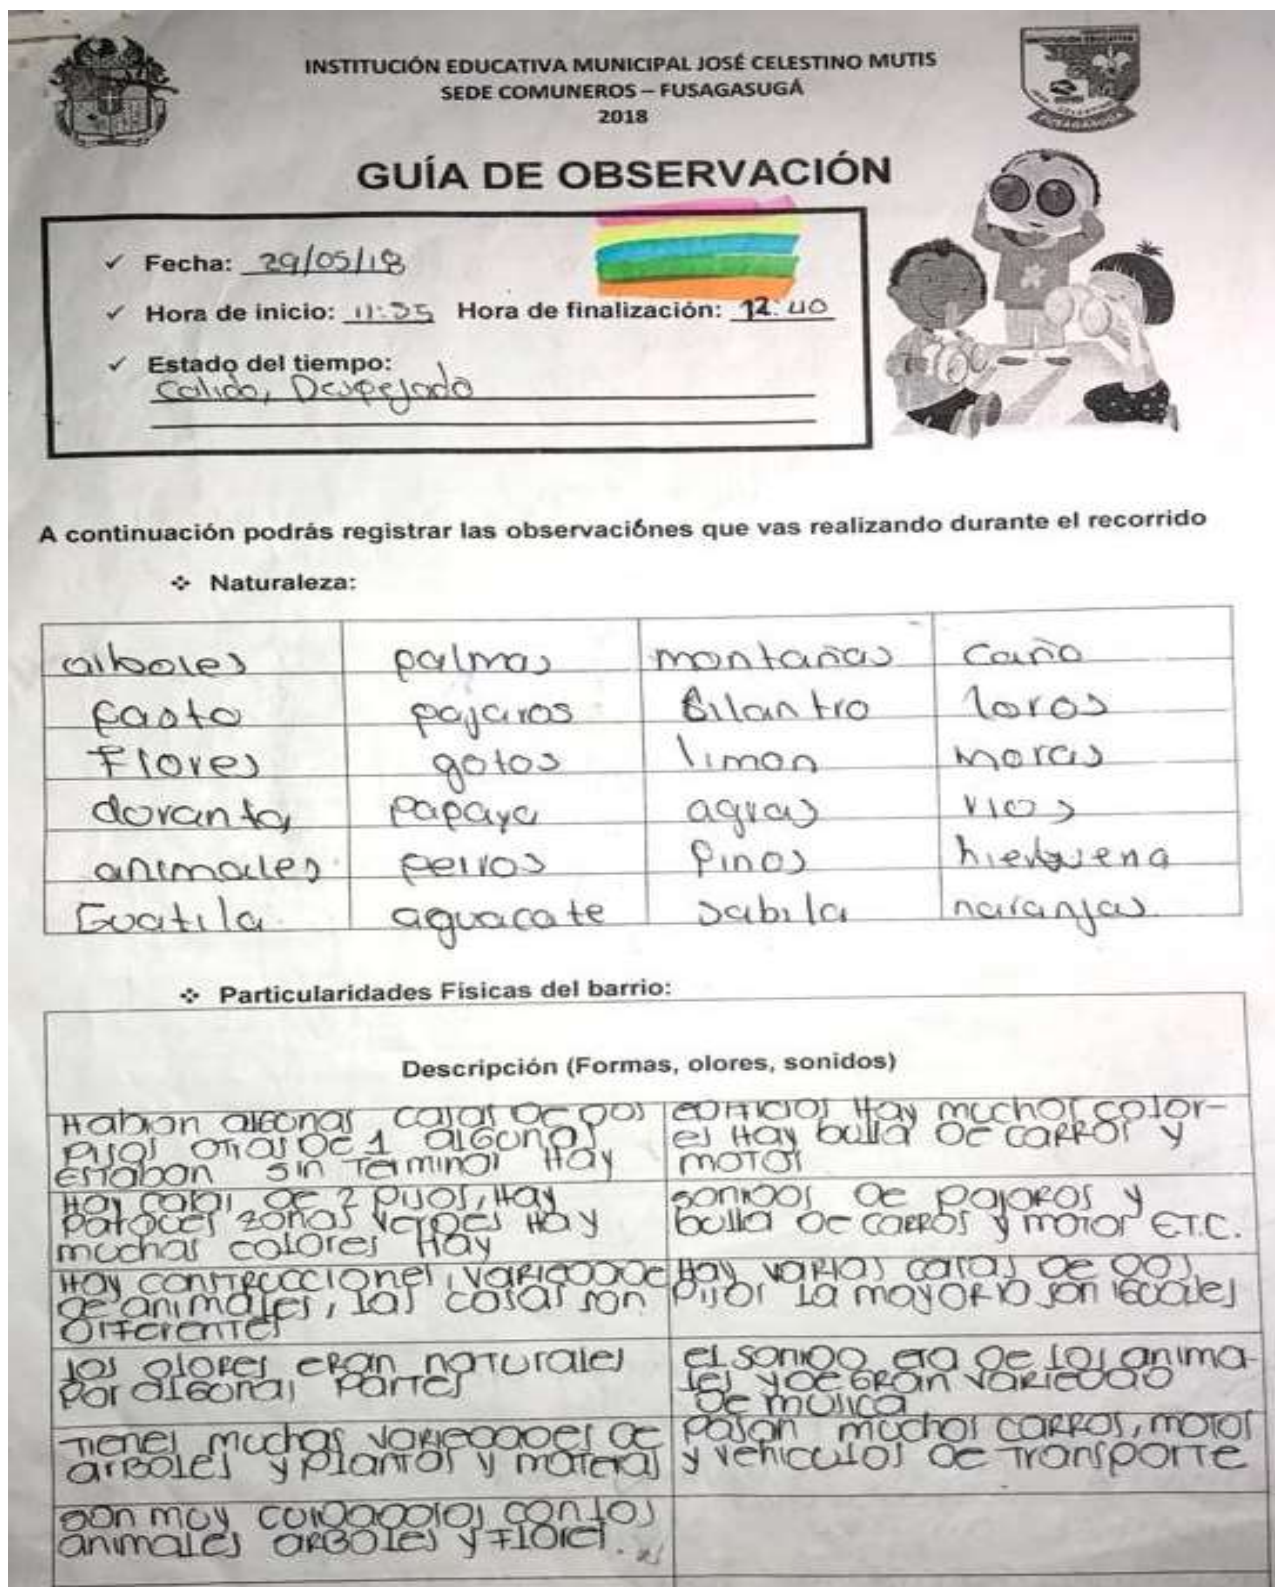 INSTITUCIÓN EDUCATIVA MUNICIPAL JOSÉ CELESTINO MUTIS
SEDE COMUNEROS – FUSAGASUGÁ
2018
FUSAGASUGA
GUÍA DE OBSERVACIÓN
✓ Fecha: 29/05/18
✓ Hora de inicio: 11:35 Hora de finalización: 12:40
✓ Estado del tiempo:
Calido, Despejado
A continuación podrás registrar las observaciónes que vas realizando durante el recorrido
❖ Naturaleza:
arboles palmas montañas caño
pasto pajaros Silantro loros
Flores gatos limon moras
doranta papaya agras rios
animales perros Pinos hierbuena
Guatila aguacate sabila naranjas
❖ Particularidades Físicas del barrio:
Descripción (Formas, olores, sonidos)
Habian algunas casas de dos
pisos otras de 1 algunas
estaban sin terminar Hay
edificios Hay muchos color-
es Hay bulla de carros y
motos
Hay casas de 2 pisos, Hay
parques zonas verdes Hay
muchas colores Hay
sonidos de pajaros y
bulla de carros y motos ETC.
Hay construcciones, variedad de
de animales, las casas son
diferentes
Hay varias casas de dos
pisos la mayoria son iguales
los olores eran naturales
por algunas partes
el sonido era de los anima-
les y de gran variedad
de musica
Tienes muchas variedades de
arboles y plantas y materas
pasan muchos carros, motos
y vehiculos de transporte
son muy cuidadosos con los
animales arboles y flores.